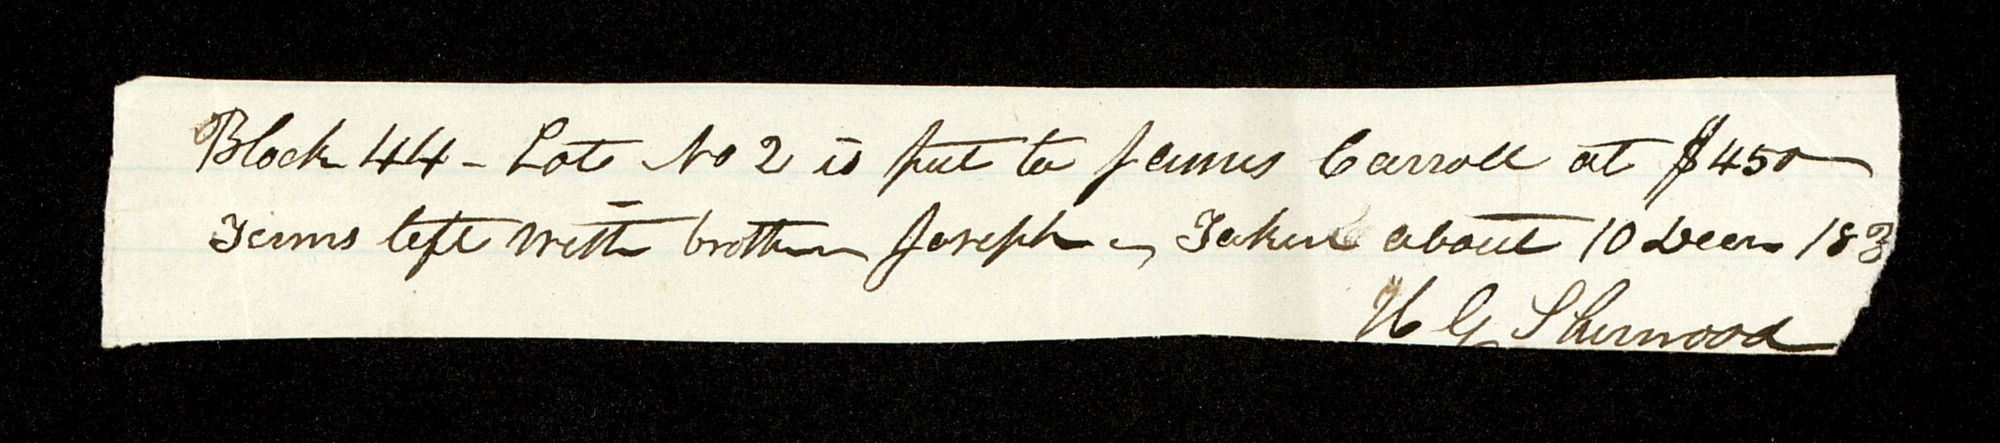 Block 44 - Lot No 2 is put to James Carroll at $450
Terms left with brother Joseph - Taken about 10 Decm 183
H G Sherwood